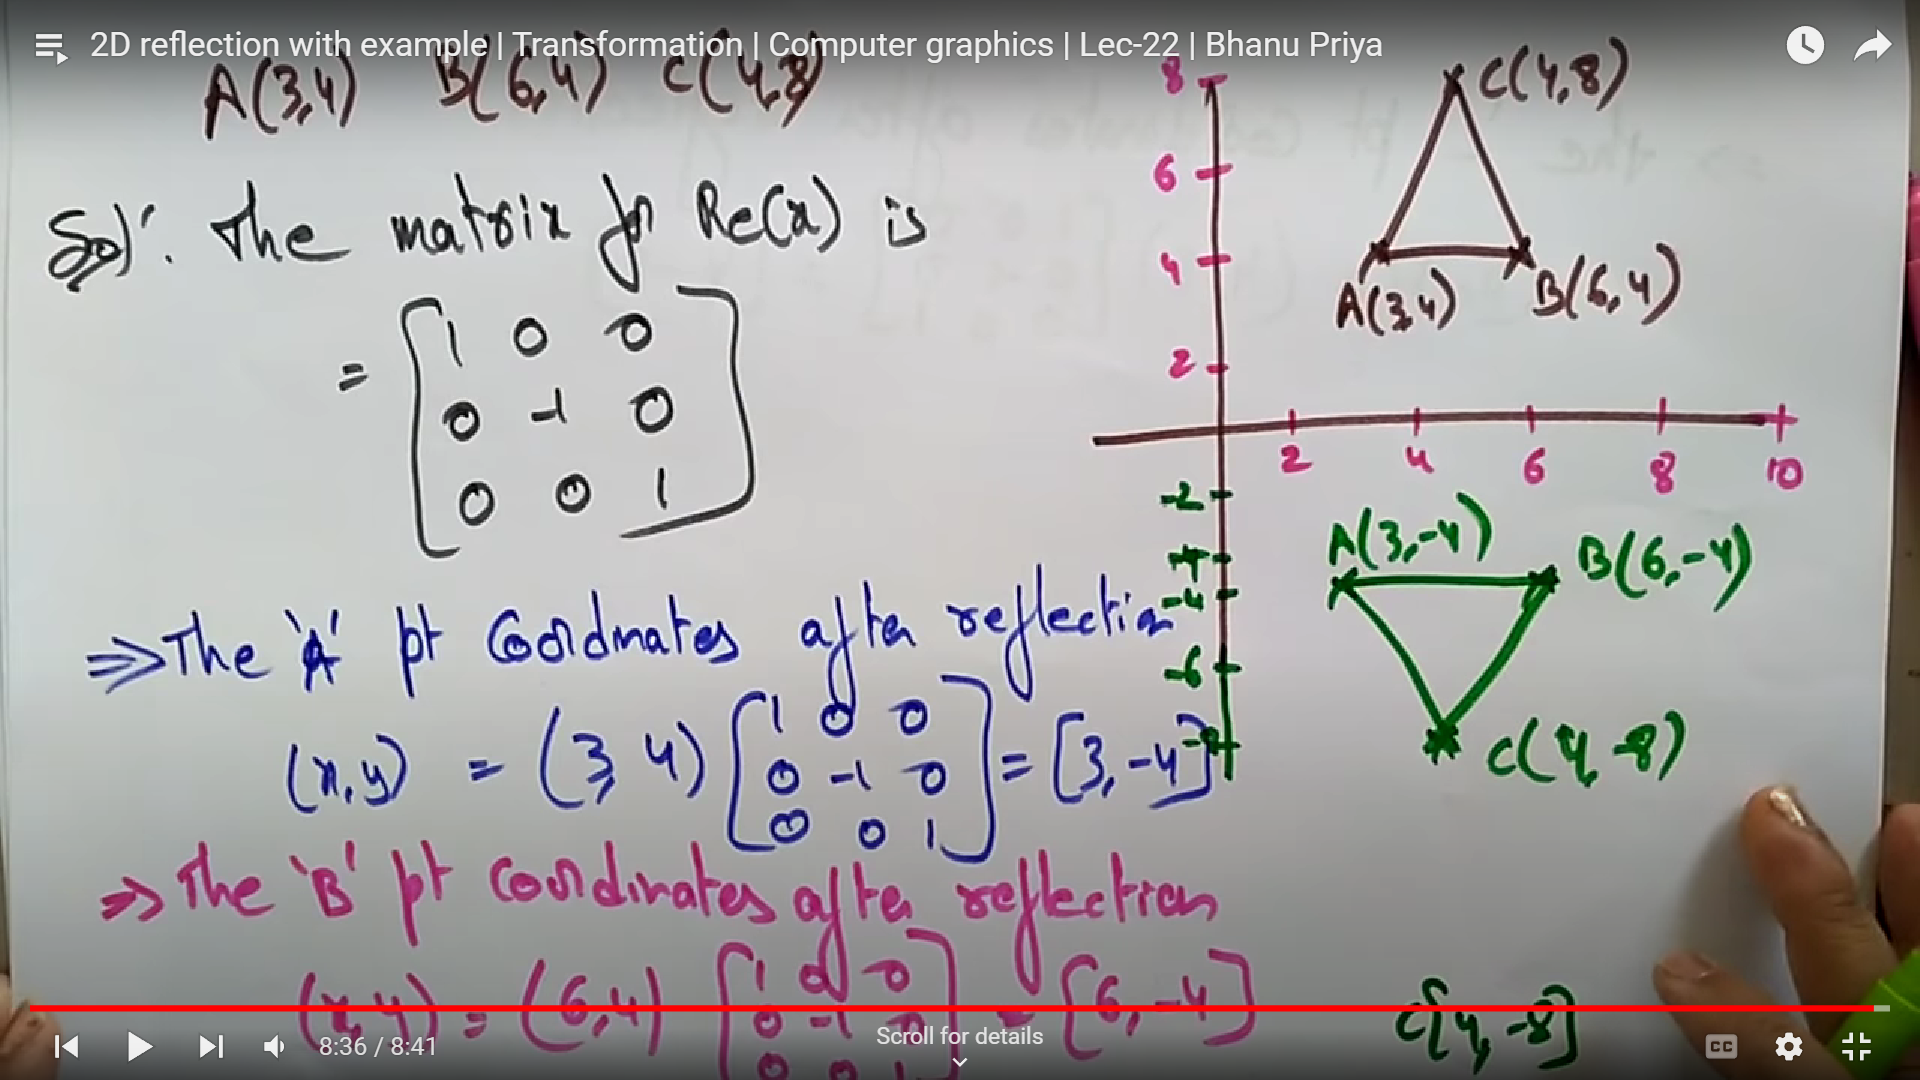 2D reflection with example | Transformation | Computer graphics | Lec-22 | Bhanu Priya
A(3,4) B(6,4) C(4,8)
Sol: The matrix for Re(x) is
= [1 0 0
0 -1 0
0 0 1]
⇒ The 'A' pt Coordinates after reflection
(x,y) = (3,4) [1 0 0
0 -1 0
0 0 1] = [3,-4]
⇒ The 'B' pt coordinates after reflection
(x,y) = (6,4) [1 0 0
0 -1 0
0 0 1] = [6,-4]
8
6
4
2
2 4 6 8 10
-2
-4
-6
-8
C(4,8)
A(3,4) B(6,4)
A(3,-4) B(6,-4)
C(4,-8)
C[4,-8]
8:36 / 8:41
Scroll for details
CC